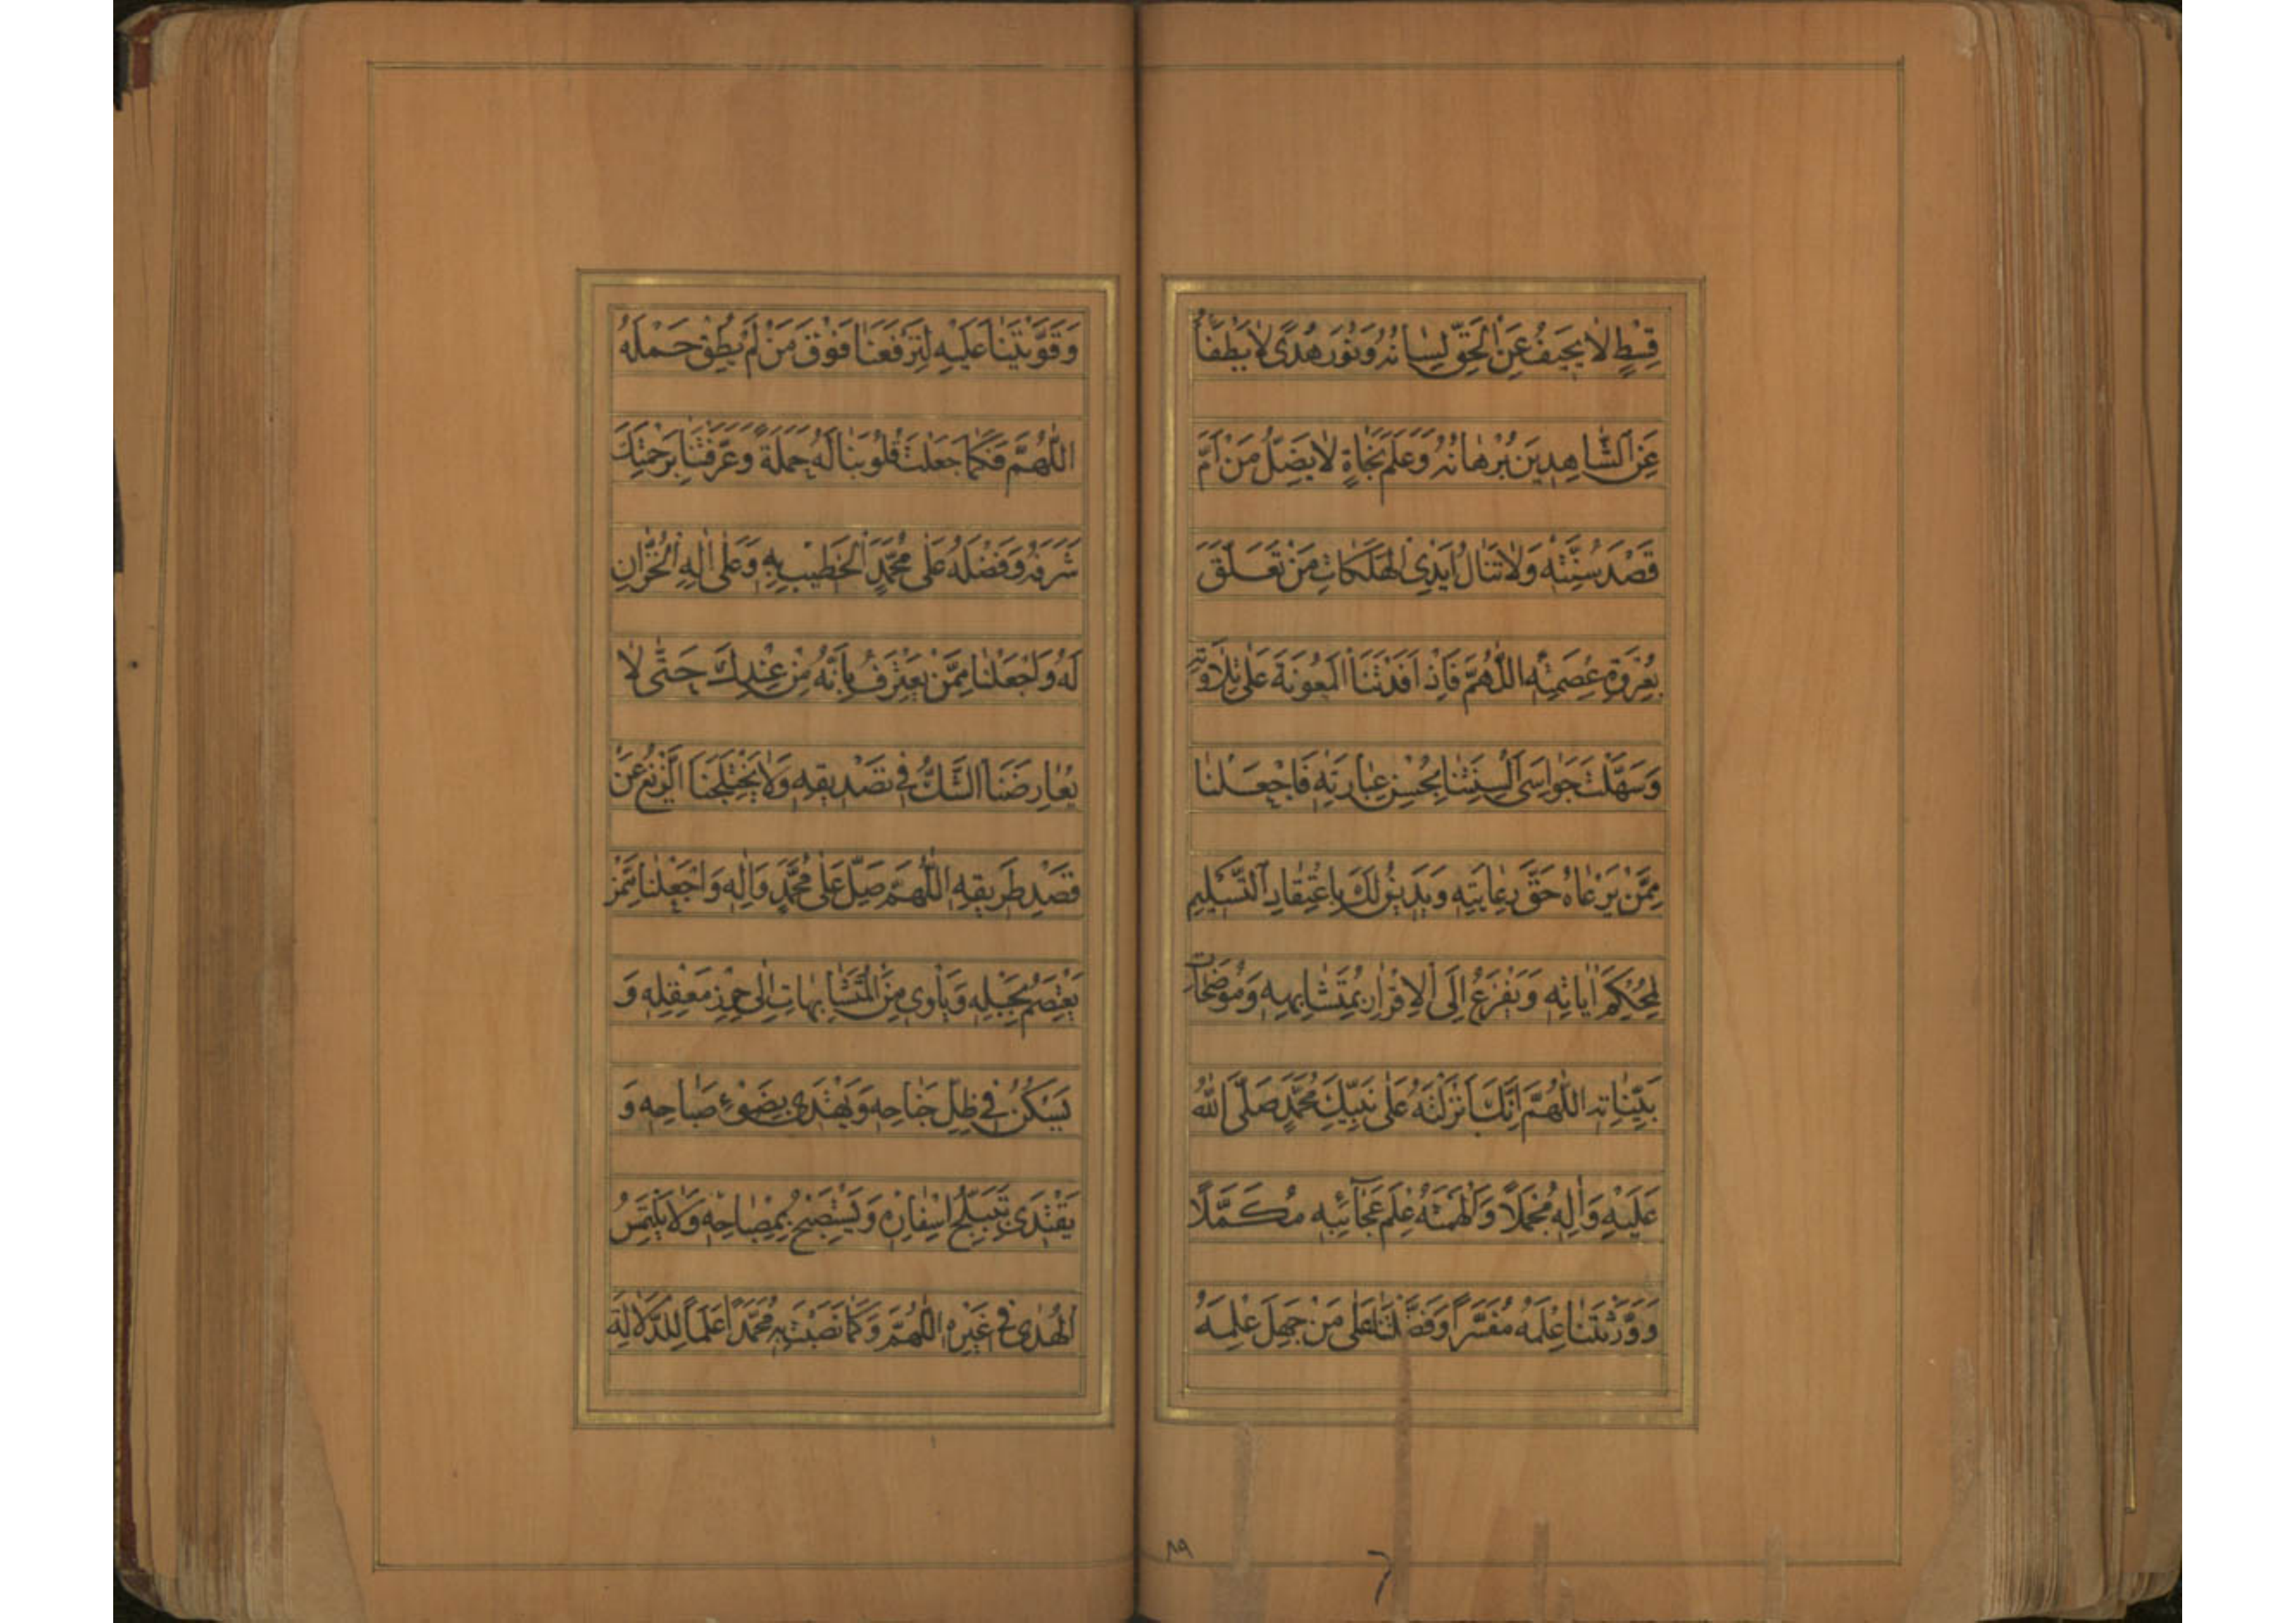 قِسْطٍ لَا يَحِيفُ عَنِ الْحَقِّ لِسَانُهُ وَنُورَ هُدًى لَا يَطْفَأُ
عَنِ الشَّاهِدِينَ بُرْهَانُهُ وَعَلَمَ نَجَاةٍ لَا يَضِلُّ مَنْ أَمَّ
قَصْدَ سُنَّتِهِ وَلَا تَنَالُ أَيْدِي الْهَلَكَاتِ مَنْ تَعَلَّقَ
بِعُرْوَةِ عِصْمَتِهِ اللَّهُمَّ فَإِذْ أَفَدْتَنَا الْمَعُونَةَ عَلَى تِلَاوَتِهِ
وَسَهَّلْتَ جَوَاسِيَ أَلْسِنَتِنَا بِحُسْنِ عِبَارَتِهِ فَاجْعَلْنَا
مِمَّنْ يَرْعَاهُ حَقَّ رِعَايَتِهِ وَيَدِينُ لَكَ بِاعْتِقَادِ التَّسْلِيمِ
لِمُحْكَمِ آيَاتِهِ وَيَفْزَعُ إِلَى الْإِقْرَارِ بِمُتَشَابِهِهِ وَمُوضَحَاتِ
بَيِّنَاتِهِ اللَّهُمَّ إِنَّكَ أَنْزَلْتَهُ عَلَى نَبِيِّكَ مُحَمَّدٍ صَلَّى اللَّهُ
عَلَيْهِ وَآلِهِ مُجْمَلًا وَأَلْهَمْتَهُ عِلْمَ عَجَائِبِهِ مُكَمَّلًا
وَوَرَّثْتَنَا عِلْمَهُ مُفَسَّرًا وَفَضَّلْتَنَا عَلَى مَنْ جَهِلَ عِلْمَهُ
٨٩
وَقَوَّيْتَنَا عَلَيْهِ لِتَرْفَعَنَا فَوْقَ مَنْ لَمْ يُطِقْ حَمْلَهُ
اللَّهُمَّ فَكَمَا جَعَلْتَ قُلُوبَنَا لَهُ حَمَلَةً وَعَرَّفْتَنَا بِرَحْمَتِكَ
شَرَفَهُ وَفَضْلَهُ عَلَى مُحَمَّدٍ الْخَطِيبِ بِهِ وَعَلَى آلِهِ الْخُزَّانِ
لَهُ وَاجْعَلْنَا مِمَّنْ يَعْتَرِفُ بِأَنَّهُ مِنْ عِنْدِكَ حَتَّى لَا
يُعَارِضَنَا الشَّكُّ فِي تَصْدِيقِهِ وَلَا يَخْتَلِجَنَا الزَّيْغُ عَنْ
قَصْدِ طَرِيقِهِ اللَّهُمَّ صَلِّ عَلَى مُحَمَّدٍ وَآلِهِ وَاجْعَلْنَا مِمَّنْ
يَعْتَصِمُ بِحَبْلِهِ وَيَأْوِي مِنَ الْمُتَشَابِهَاتِ إِلَى حِرْزِ مَعْقِلِهِ وَ
يَسْكُنُ فِي ظِلِّ جَنَاحِهِ وَيَهْتَدِي بِضَوْءِ صَبَاحِهِ وَ
يَقْتَدِي بِتَبَلُّجِ إِسْفَارِهِ وَيَسْتَصْبِحُ بِمِصْبَاحِهِ وَلَا يَلْتَمِسُ
الْهُدَى فِي غَيْرِهِ اللَّهُمَّ وَكَمَا نَصَبْتَ بِهِ مُحَمَّدًا عَلَمًا لِلدَّلَالَةِ